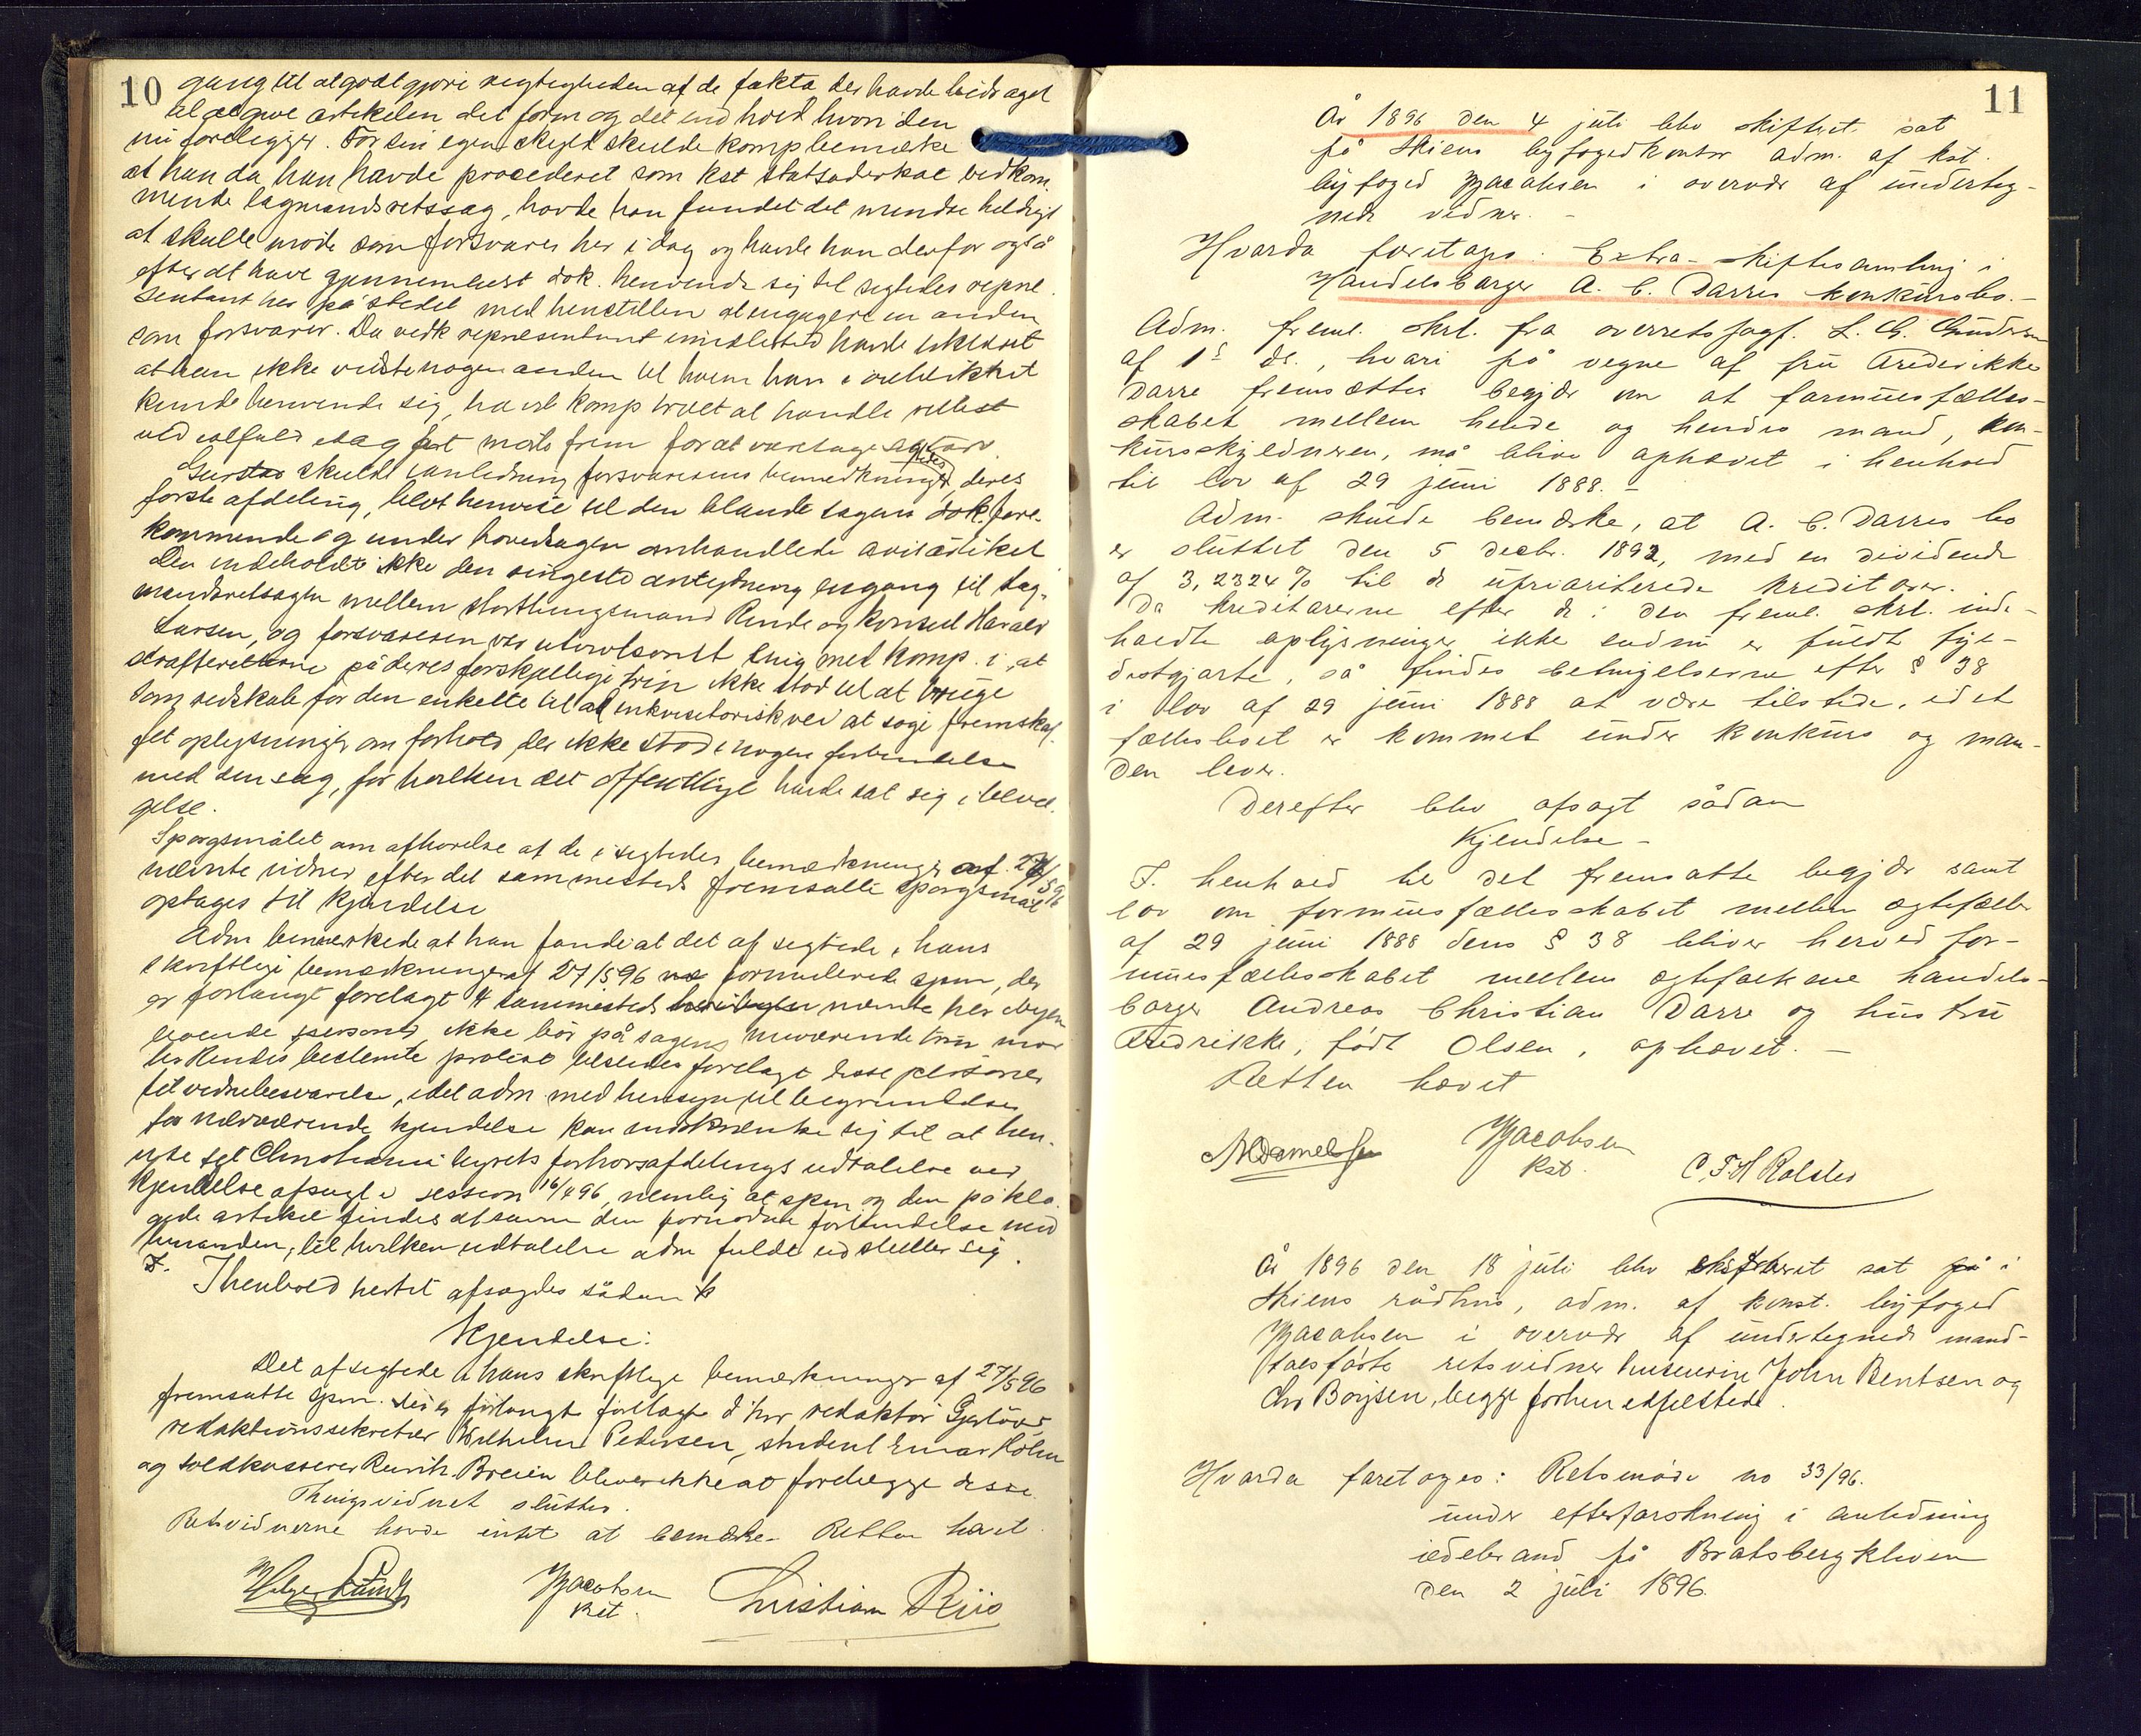 10
gang til at godtgjøre rigtigheden af de fakta der havde bidraget
til at give artikelen det form og det indhold hvori den
nu foreligger. For sin egen skyld skulde komp bemærke
at han da han havde procederet som kst statsadvokat vedkom
mende lagmandsretssag, havde han fundet det mindre heldigt
at skulle møde som forsvarer her i dag og havde han derfor også
efter at have gjennemlæst dok. henvendt sig til sigtedes repræ
sentant her på stedet med henstillen at engagere en anden
som forsvarer. Da vedk repræsentant imidlertid havde erklæret
at han ikke vidste nogen anden til hvem han i øieblikket
kunde henvende sig, havde komp troet at handle rettest
ved ialfald idag at møde frem for at varetage sigtedes tarv.
Gjerstad skulde i anledning forsvarerens bemærkninger, deres
første afdeling, blot henvise til den blandt sagens dok fore-
kommende og under hovedsagen omhandlede avisartikel
Den indeholdt ikke den ringeste antydning engang til lag-
mandsretssagen mellem storthingsmand Rinde og konsul Harald
Larsen, og forsvareren var utvivlsomt enig med komp. i, at
strafferetterne på deres forskjellige trin ikke stod til at bruge
som redskab for den enkelte til ad inkvisitorisk vei at søge fremskaf-
fet oplysninger om forhold der ikke stod i nogen forbindelse
med den sag, for hvilken det offentlige havde sat sig i bevæ-
gelse.
Spørgsmålet om afhørelse af de i sigtedes bemærkninger af 27/5 96
nævnte vidner efter det sammesteds fremsatte spørgsmål
optages til kjendelse
Adm bemærkede at han fandt at det af sigtede i hans
skriftlige bemærkninger af 27/5 96 formulerede spm, der
er forlangt forelagt 4 sammesteds nævnte her i byen
boende personer, ikke bør på sagens nuværende trin mod
Ths Rindes bestemte protest tilstedes forelagt disse personer
til vidnebesvarelse, idet adm med hensyn til begrundelse
for nærværende kjendelse kan indskrænke sig til at hen-
vise til Christiania byrets forhørsafdelings udtalelse ved
kjendelse afsagt i session 16/4 96, nemlig at spm og den påkla-
gede artikel findes at savne den fornødne forbindelse med
hinanden, til hvilken udtalelse adm fuldt ud slutter sig.
I henhold hertil afsagdes sådan
Kjendelse:
Det af sigtede i hans skriftlige bemærkninger af 27/5 96
fremsatte spm. der er forlangt forelagt d'hrr redaktør Gjerløw,
redaktionssekretær Wilhelm Pedersen, student Einar Holm
og toldkasserer Rurik Breien bliver ikke at forelægge disse.
Thingsvidnet sluttes.
Retsvidnerne havde intet at bemærke. Retten hævet.
Helge Lund
Jacobsen
kst.
Christian Riis
11
År 1896 den 4 juli blev skifteret sat
på Skiens byfogedkontor adm. af kst.
byfoged Jacobsen i overvær af underteg-
nede vidner. -
Hvorda foretoges: Extra-skiftesamling i
Handelsborger A. C. Darres konkursbo. -
Adm. freml. skrl. fra overretssagf. L. C. Gundersen
af 1s ds., hvori på vegne af fru Fredrikke
Darre fremsættes begjær om at formuesfælles-
skabet mellem hende og hendes mand, kon-
kursskyldneren, må blive ophævet i henhold
til lov af 29 juni 1888. -
Adm. skulde bemærke, at A. C. Darres bo
er sluttet den 5 decbr. 1892, med en dividende
af 3,2324 % til de uprioriterede kreditorer.
Da kreditorerne efter de i den freml. skrl. inde-
holdte oplysninger ikke endnu er fuldt fyl-
destgjorte, så findes betingelserne efter § 38
i lov af 29 juni 1888 at være tilstede, idet
fællesboet er kommet under konkurs og man-
den lever.
Derefter blev afsagt sådan
Kjendelse -
I henhold til det fremsatte begjær samt
lov om formuesfællesskabet mellem ægtefæller
af 29 juni 1888 dens § 38 bliver herved for-
muesfællesskabet mellem ægtefolkene handels-
borger Andreas Christian Darre og hustru
Fredrikke, født Olsen, ophævet. -
Retten hævet
N Danielsen
Jacobsen
kst.
C. F. H Rolsles
År 1896 den 18 juli blev ekstraret sat på i
Skiens rådhus, adm. af konst. byfoged
Jacobsen i overvær af undertegnede mand-
talsførte retsvidner huseierne John Bentsen og
Chr Borgsen, begge forhen edfæstede.
Hvorda foretoges: Retsmøde no 33/96.
under efterforskning i anledning
ildebrand på Bratsbergkleven
den 2 juli 1896.